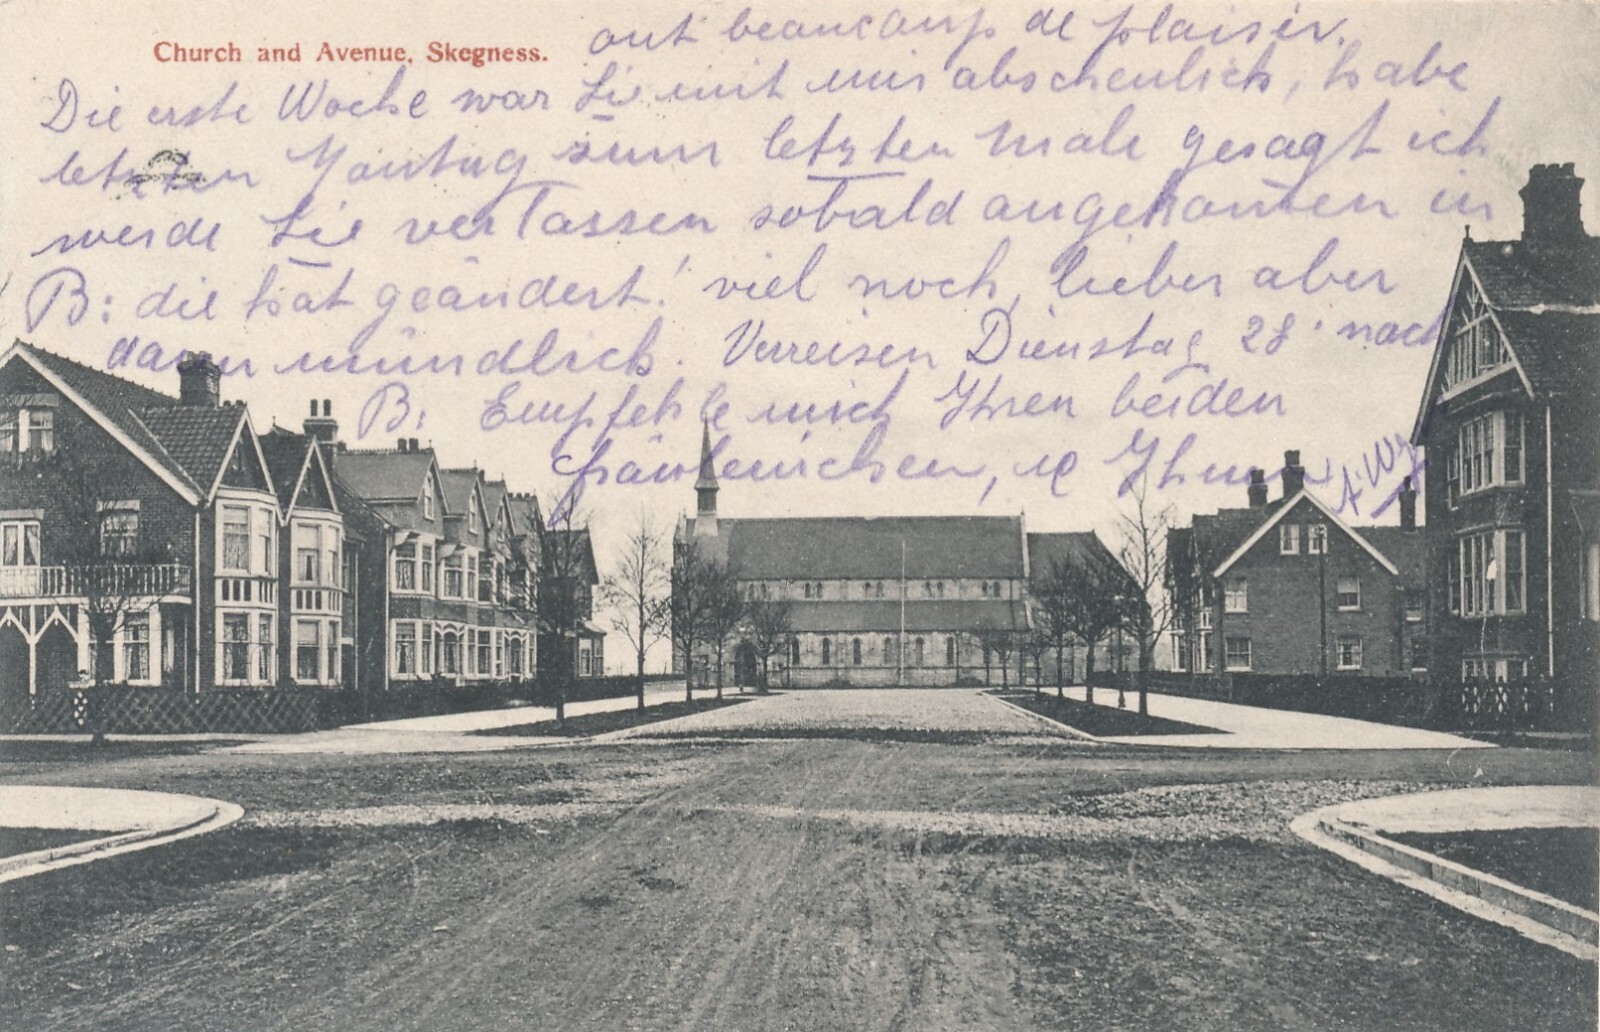 Church and Avenue, Skegness.
ont beaucoup de plaisir.
Die erste Woche war Sie mit mir abscheulich, habe
letzten Montag zum letzten Male gesagt ich
werde Sie verlassen sobald angekom̄en in
B: die hat geändert! viel noch, lieber aber
dann mündlich. Verreisen Dienstag 28' nach
B: Empfehle mich Ihren beiden
Fräuleinchen, u Ihnen